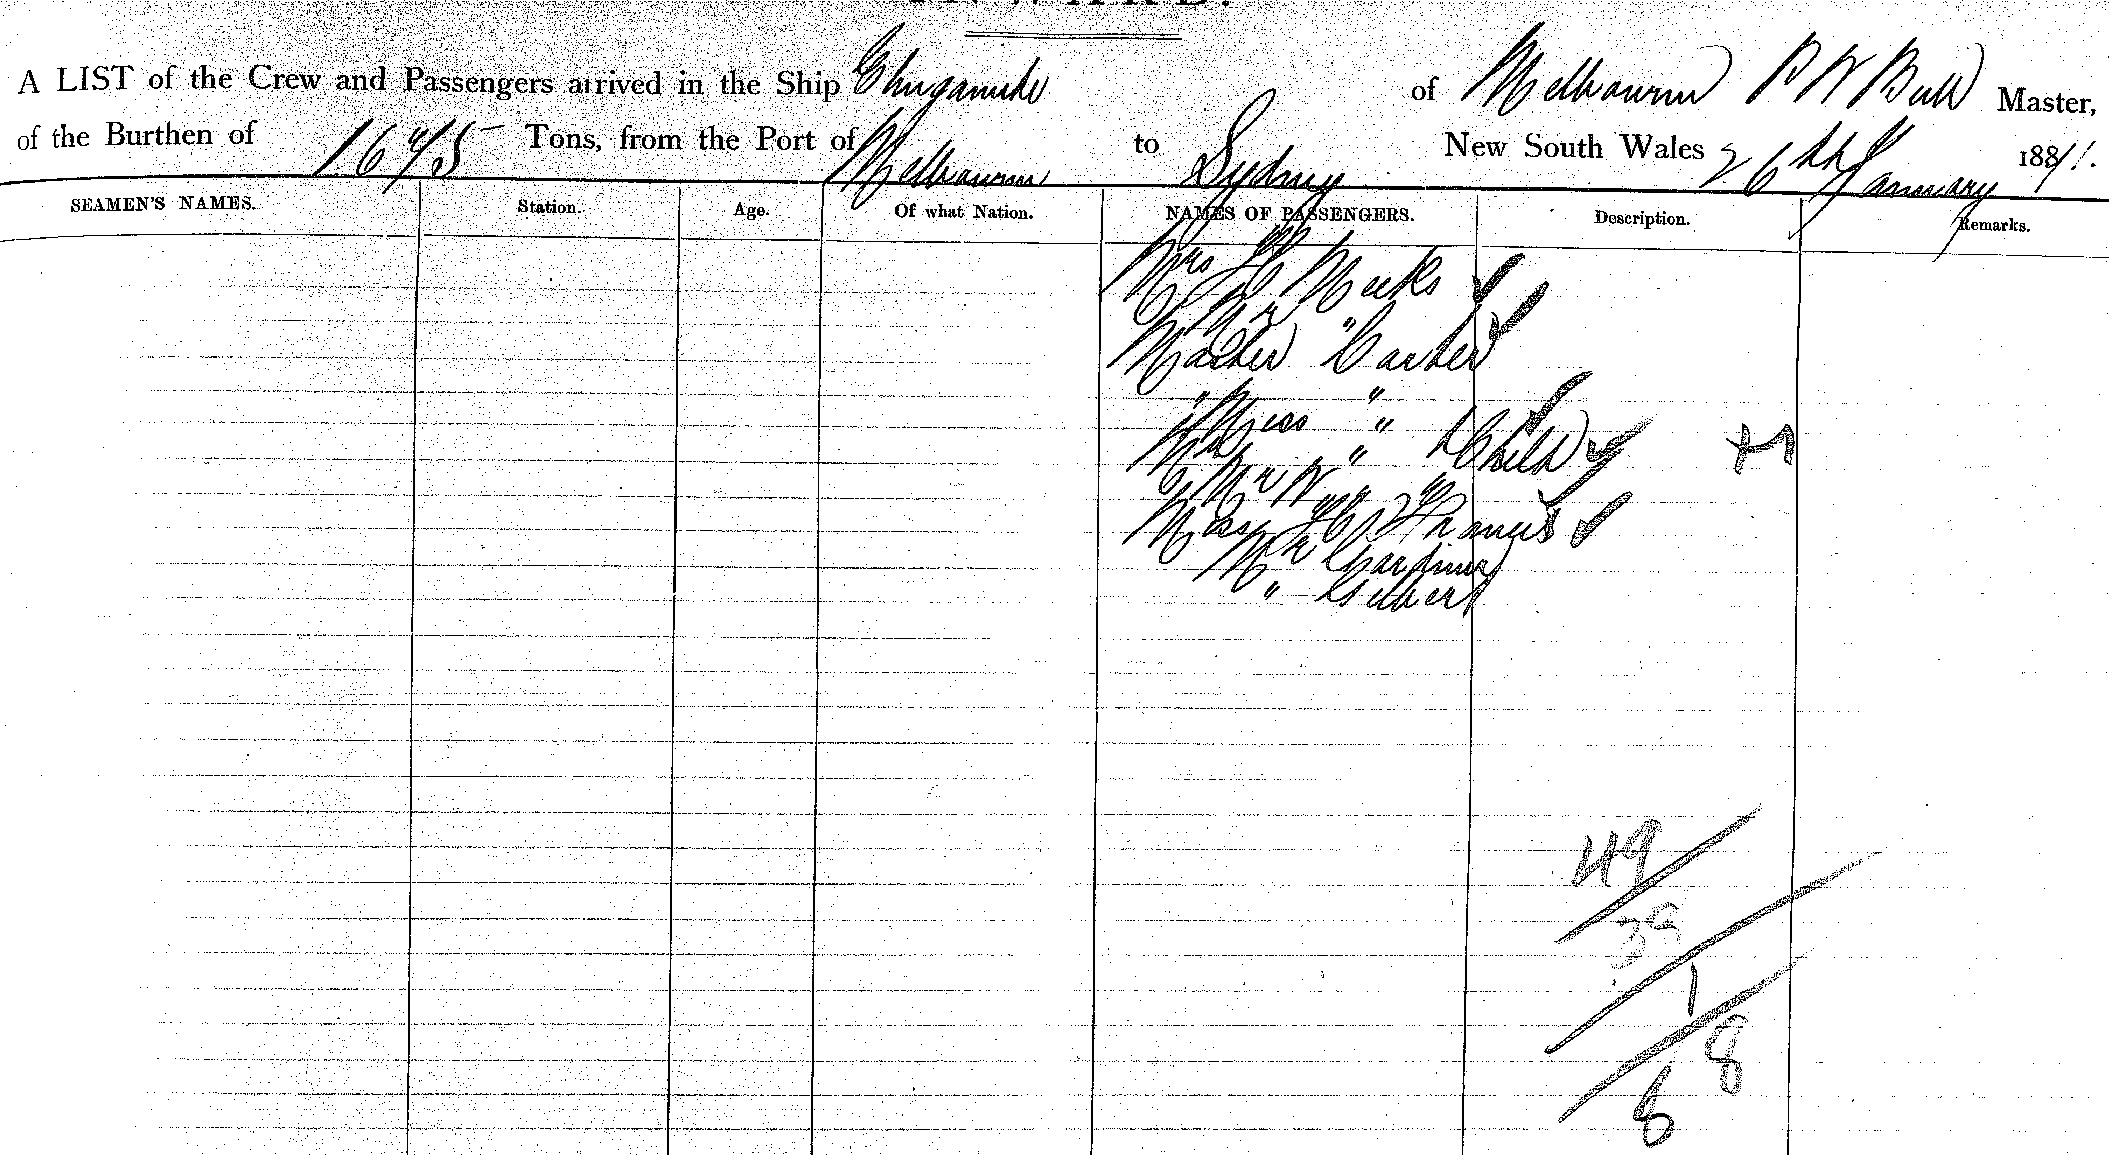 A LIST of the Crew and Passengers arrived in the Ship of Melbourne P W Bull Master,
of the Burthen of Tons, from the Port of Melbourne to Sydney New South Wales 26th January 1881.
SEAMEN'S NAMES. Station. Age. Of what Nation. NAMES OF PASSENGERS. Description. Remarks.
Mrs H Meeks
Mr "
Master Carter
" "
Miss "
Mrs " & Child
Mr W
Mary Francis
Mr Gardiner
" Gilbert
49
39
1
8
8